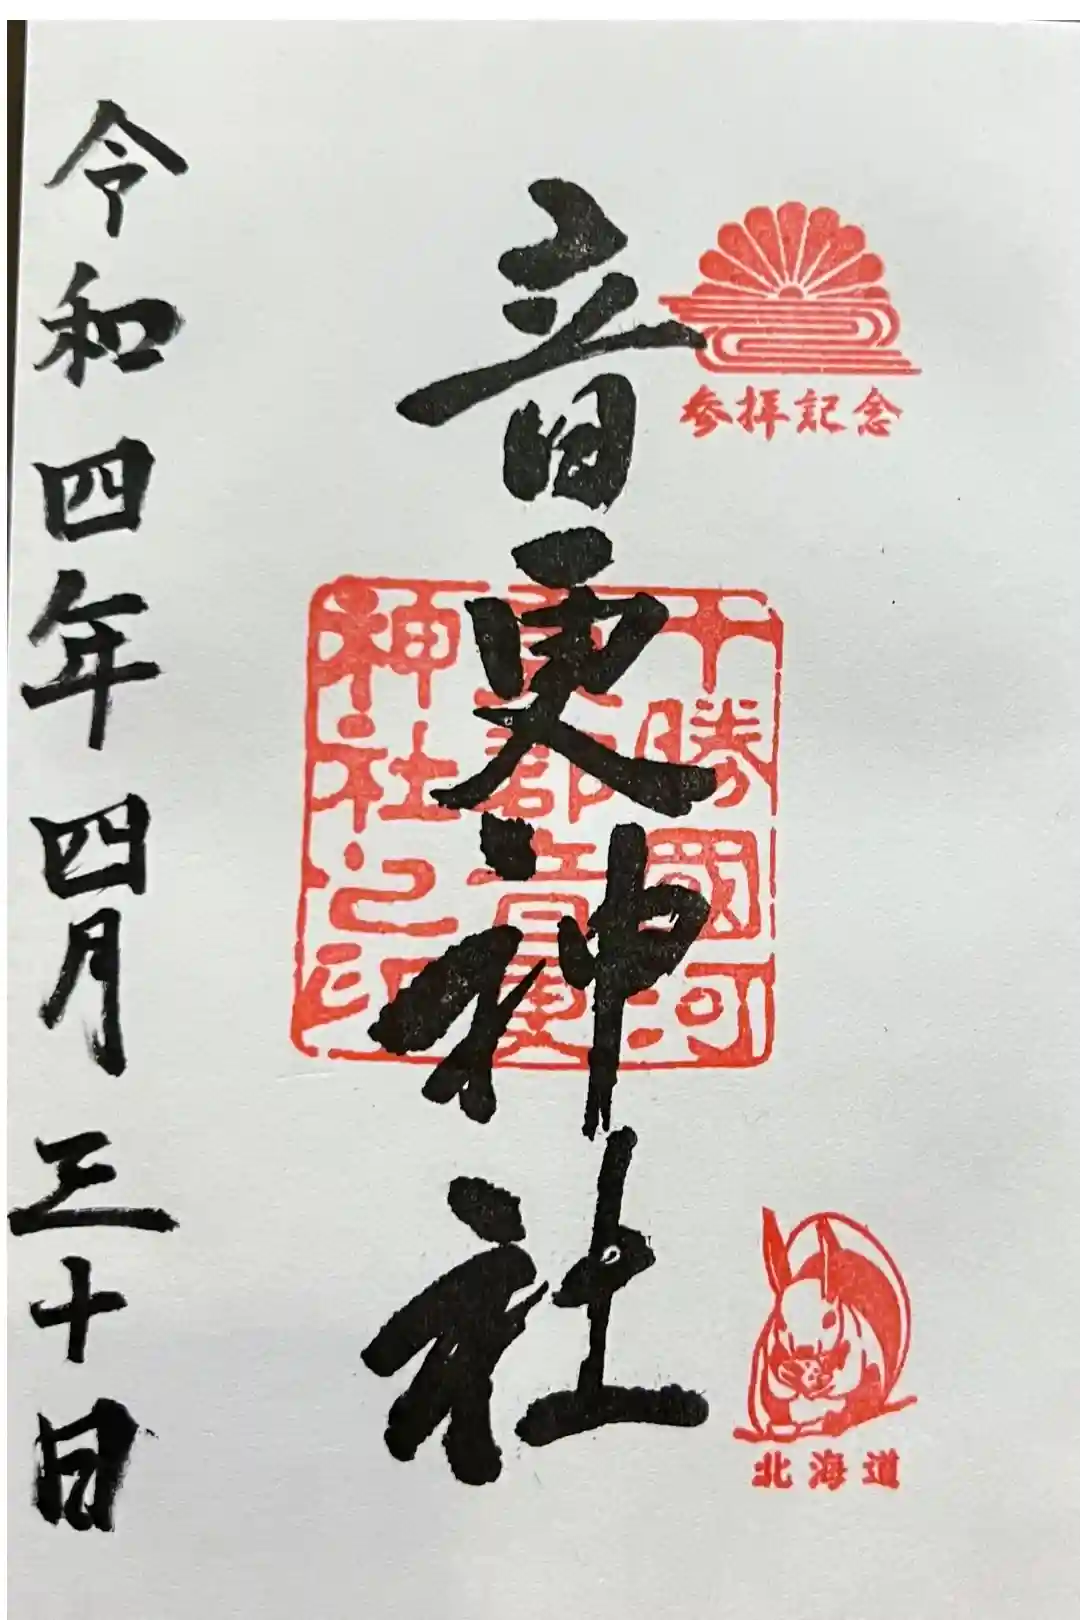 参拝記念
音更神社
十勝國河
東郡音更
神社之印
北海道
令和四年四月三十日